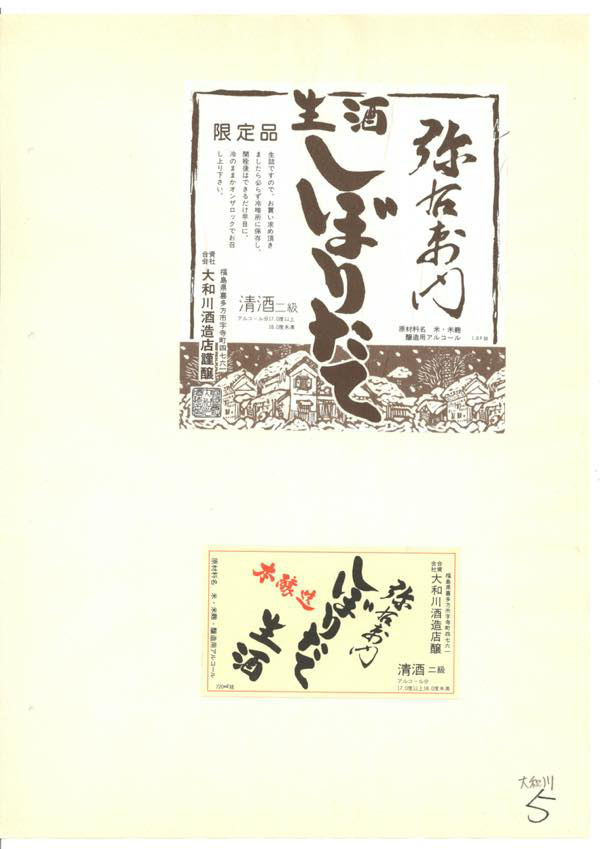 生酒
しぼりたて
弥右衛門
限定品
生詰ですので、お買い求め頂き
ましたら必らず冷暗所に保存し、
開栓後はできるだけ早目に、
冷のままかオンザロックでお召
し上り下さい。
清酒二級
アルコール分17.0度以上
18.0度未満
原材料名 米・米麹
醸造用アルコール
1.8ℓ詰
福島県喜多方市字寺町四七六一
合資
会社
大和川酒造店謹醸
弥右衛門
しぼりたて
生酒
本醸造
福島県喜多方市字寺町四七六一
合資
会社
大和川酒造店醸
清酒二級
アルコール分
17.0度以上18.0度未満
原材料名 米・米麹・醸造用アルコール
720㎖詰
大和川
5